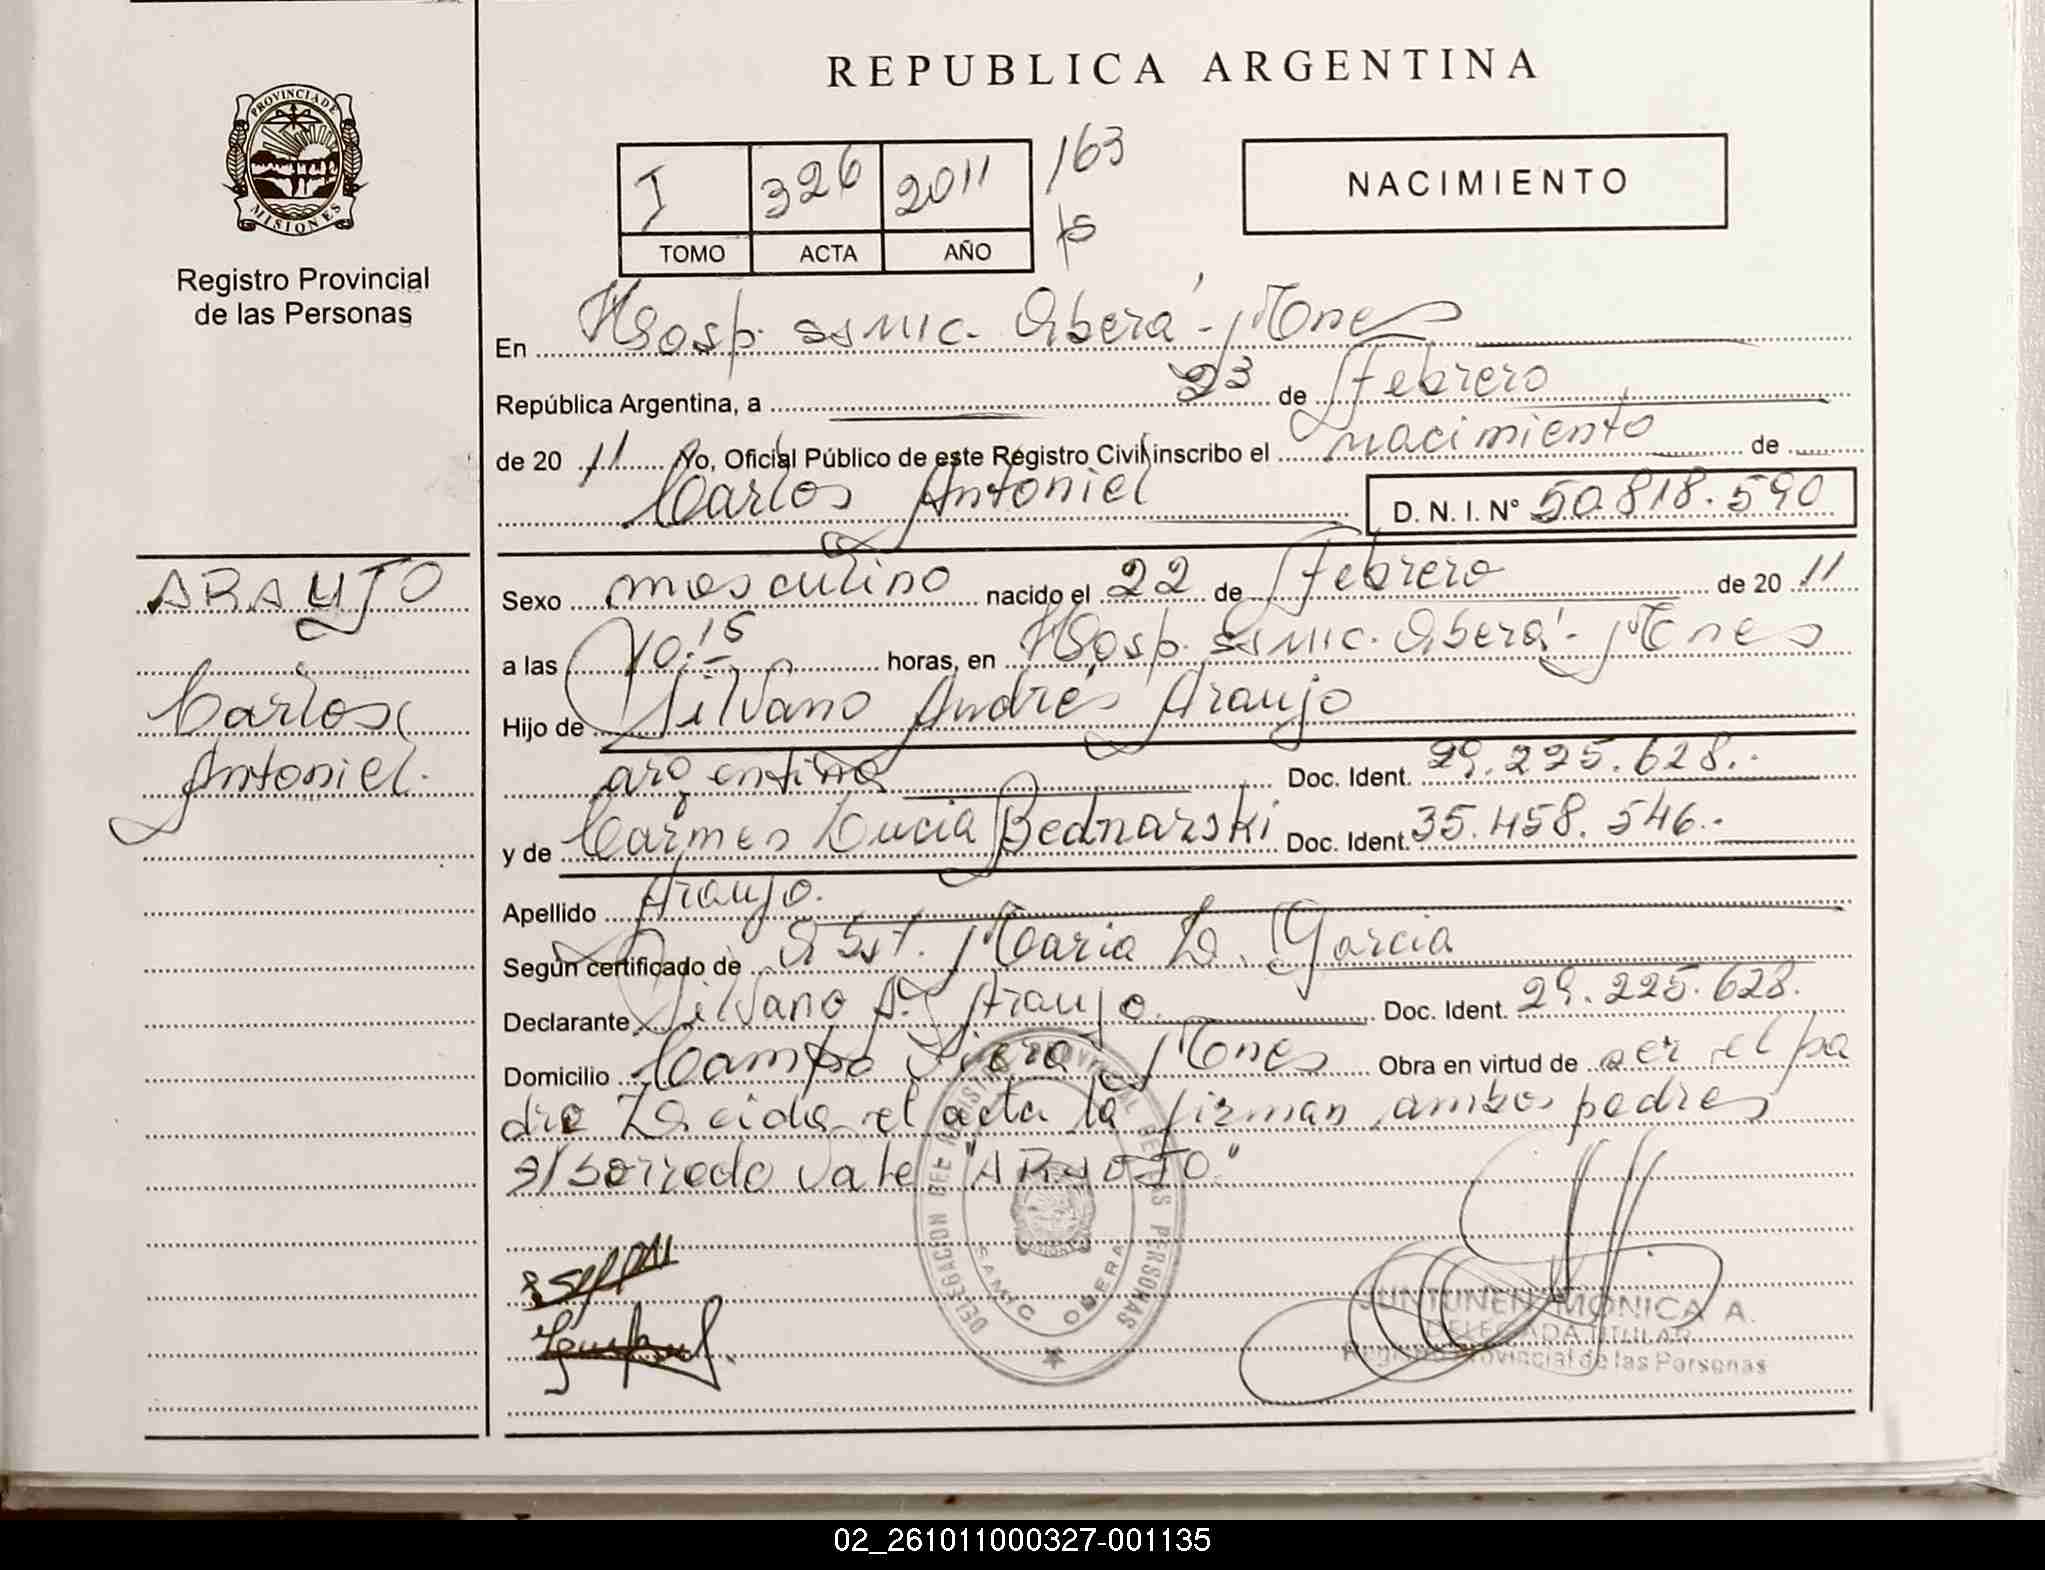 REPUBLICA ARGENTINA
PROVINCIA DE
MISIONES
Registro Provincial
de las Personas
I 326 2011 163
TOMO ACTA AÑO
NACIMIENTO
En Hosp. SAMIC. Oberá - Mnes
República Argentina, a 23 de Febrero
de 20 11 Yo, Oficial Público de este Registro Civil inscribo el nacimiento de
Carlos Antoniel
D. N. I. N° 50.818.590
ARAUJO
Carlos
Antoniel.
Sexo masculino nacido el 22 de Febrero de 20 11
a las 10:15 horas, en Hosp. SAMIC. Oberá - Mnes
Hijo de Silvano Andrés Araujo
argentino Doc. Ident. 29.225.628.-
y de Carmen Lucia Bednarski Doc. Ident. 35.458.546.-
Apellido Araujo.
Según certificado de Obst. Maria L. Garcia
Declarante Silvano A. Araujo. Doc. Ident. 29.225.628.
Domicilio Campo Viera Mnes Obra en virtud de ser el pa
dre Leida el acta la firman ambos padres
S/borrado vale "ARAUJO"
DELEGACION DEL REGISTRO PROVINCIAL DE LAS PERSONAS
SAMIC OBERA
JUNTUNEN MONICA A.
DELEGADA TITULAR
Registro Provincial de las Personas
02_261011000327-001135